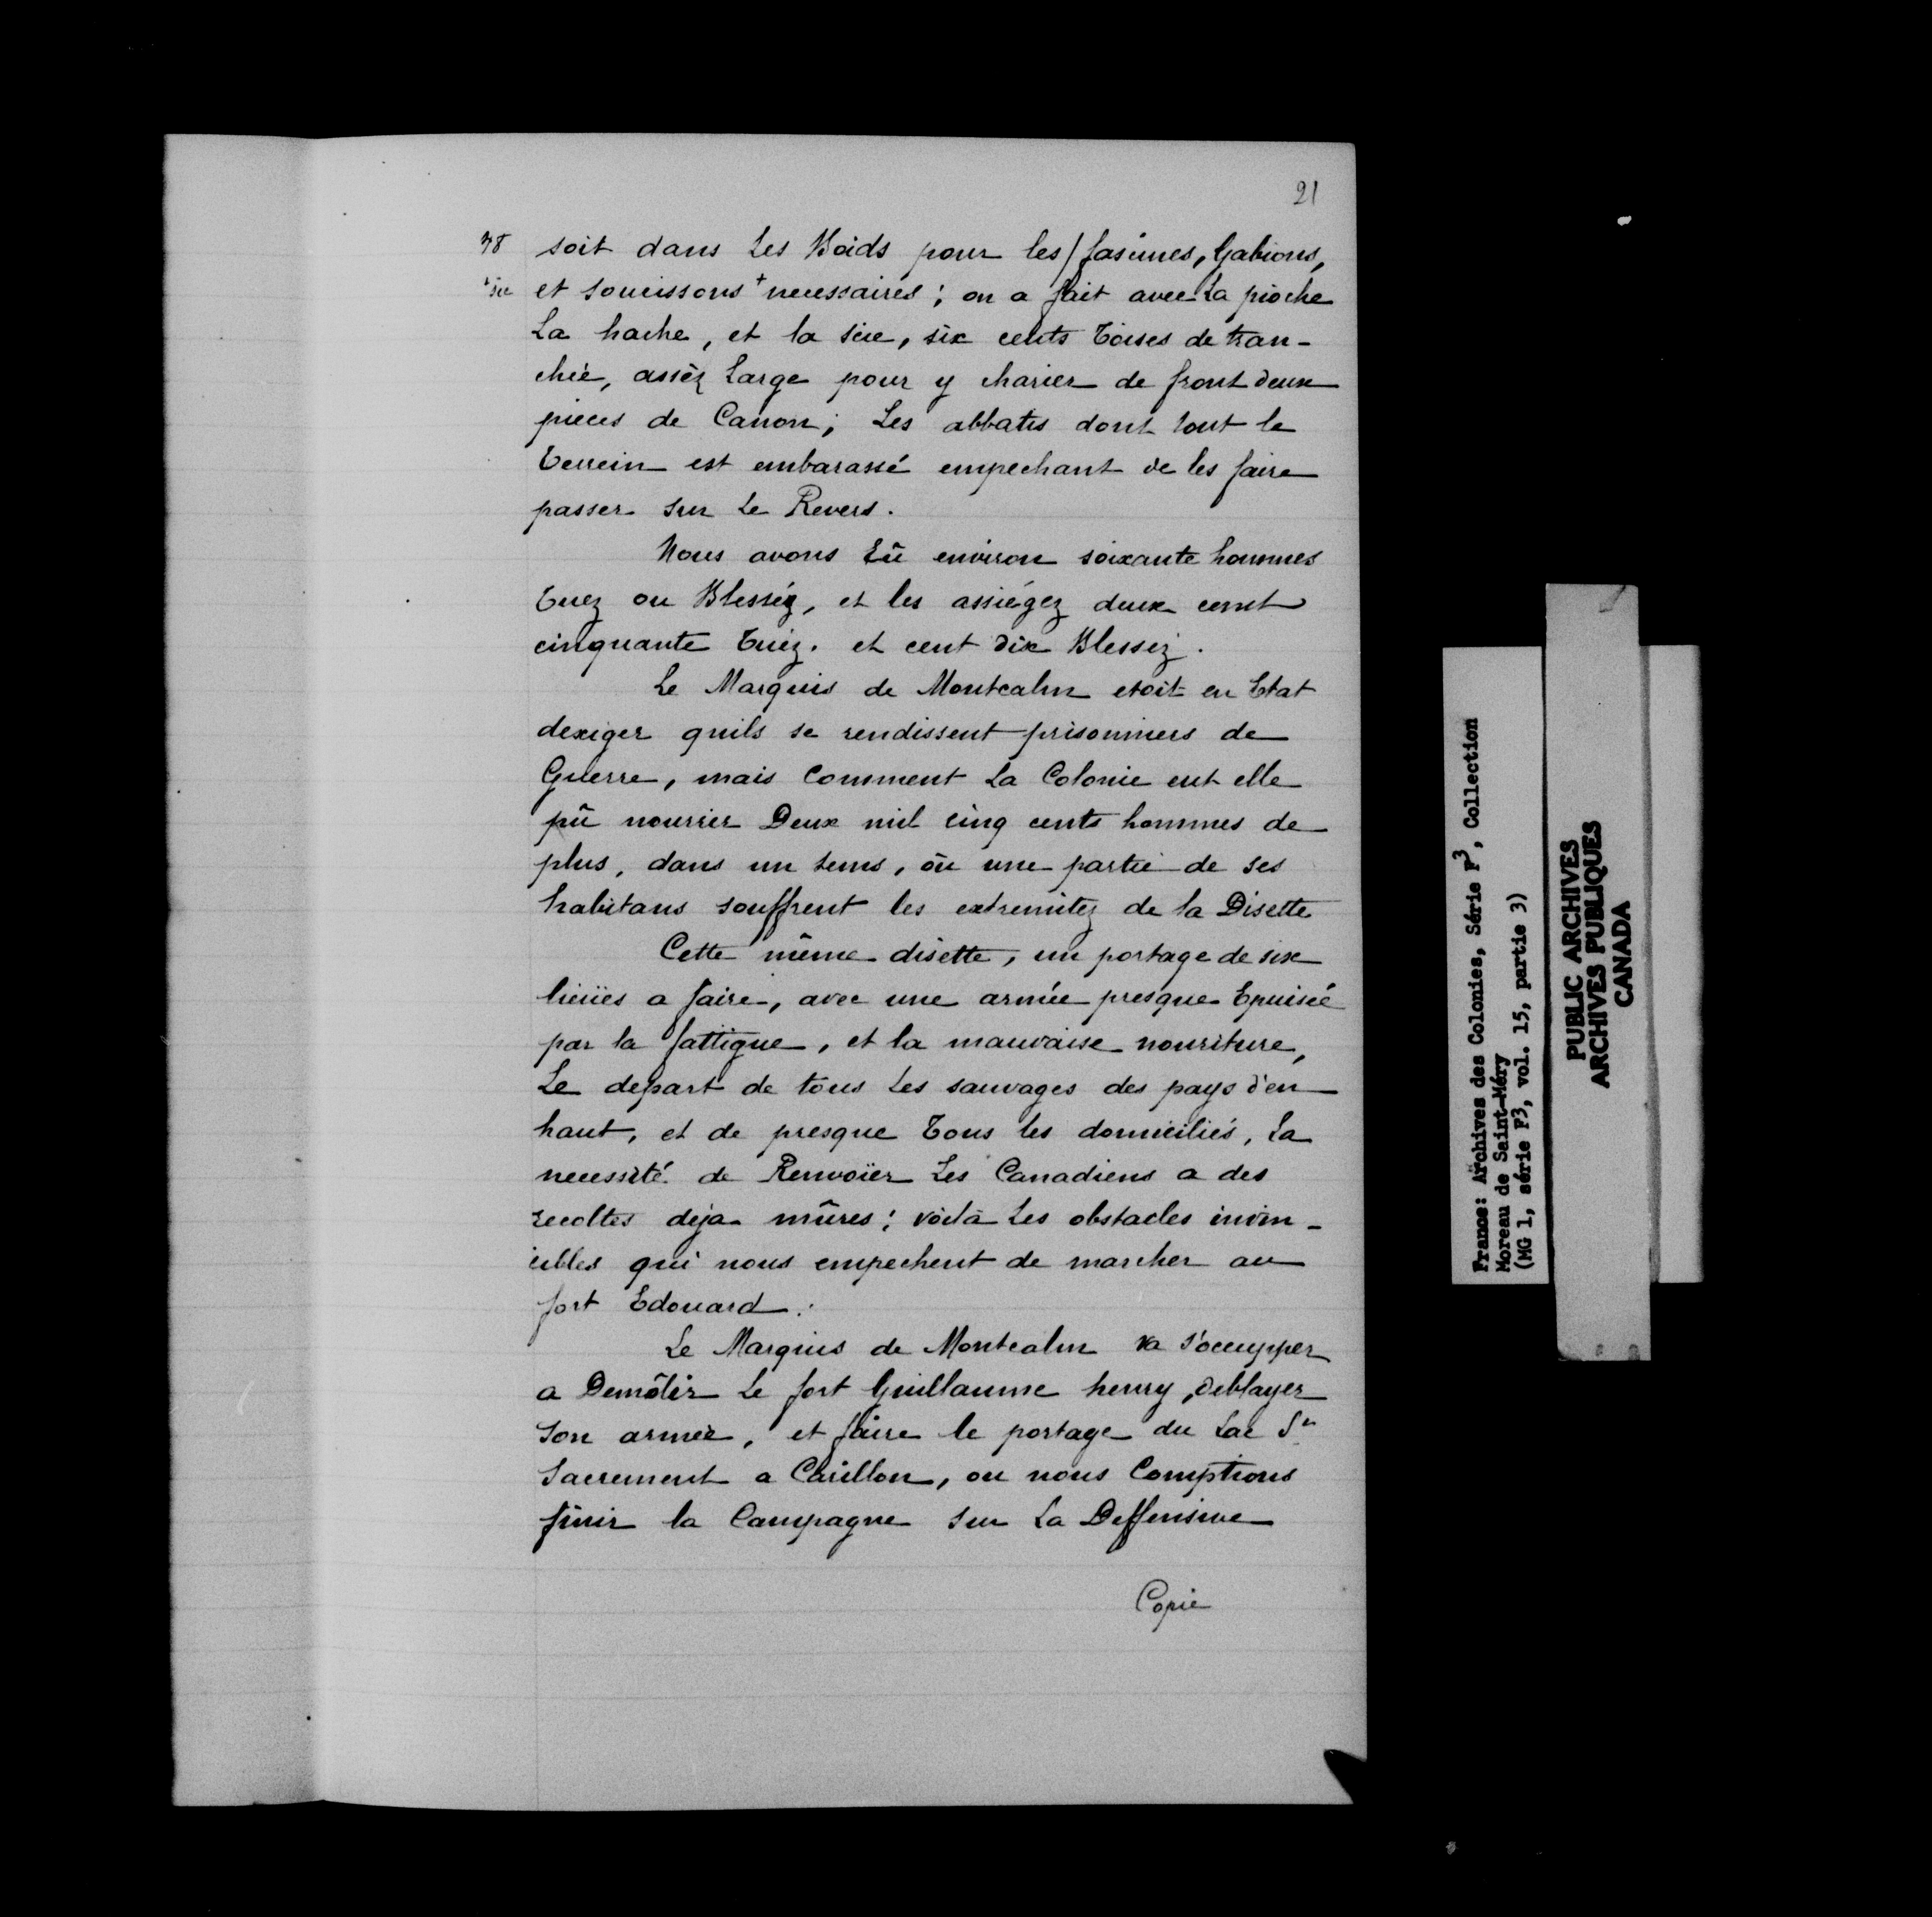 21
38 soit dans Les Boids pour les / fasines, Gabions,
+ sic et soucissons + necessaires ; on a fait avec La pioche
La hache, et la scie, six cents Toises de tran-
chée, assèz Large pour y charier de front deux
pieces de Canon ; Les abbatis dont tout le
Terrein est embarassé empechant de les faire
passer sur Le Revers.
Nous avons Eû environ soixante hommes
Tuez ou Blesséz, et les assiégez deux cent
cinquante Tuéz. et cent dix Blessez.
Le Marquis de Montcalm etoit en Etat
dexiger quils se rendissent prisonniers de
Guerre, mais Comment La Colonie eut elle
pû nourrir Deux mil cinq cents hommes de
plus, dans un tems, où une partie de ses
habitans souffrent les extremitez de la Disette
Cette même disette, un portage de six
lieües a faire, avec une armée presque Epuisée
par la fattigue, et la mauvaise nouriture,
Le depart de tous Les sauvages des pays d'en
haut, et de presque Tous les domiciliés, La
necessité de Renvoïer Les Canadiens a des
recoltes deja mûres ; voila Les obstacles invin-
cibles qui nous empechent de marcher au
fort Edouard.
Le Marquis de Montcalm va s'occupper
a Demôlir Le fort Guillaume henry, deblayer
Son armée, et faire le portage du Lac St
Sacrement a Carillon, ou nous Comptions
finir la Campagne sur La Deffensive
Copie
France: Archives des Colonies, Série F3, Collection
Moreau de Saint-Méry
(MG 1, série F3, vol. 15, partie 3)
PUBLIC ARCHIVES
ARCHIVES PUBLIQUES
CANADA